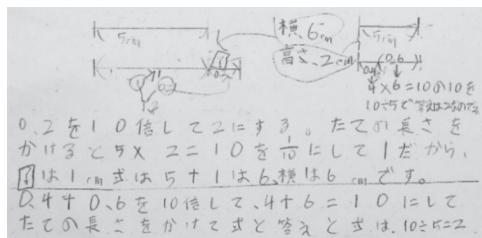 5cm
横、6cm
高さ、2cm
5cm
0.6
4×6=10の10を
10÷5で答えは2なので2
0.2を10倍して2にする。たての長さを
かけると5×2=10を1/10にして1だから、
は1cm式は5+1は6、横は6cmです。
0.4+0.6を10倍して、4+6=10にして
たての長さをかけて式と答えと式は、10÷5=2